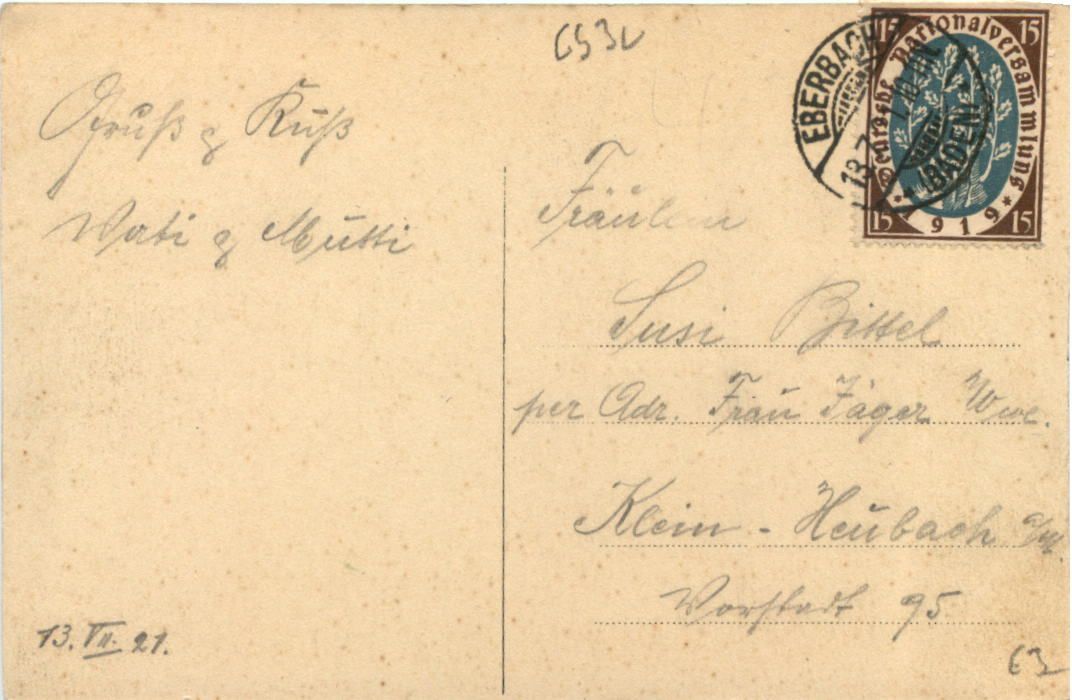 Gruß & Kuß
Vati & Mutti
13. VII. 21.
Fräulein
Susi Bittel
per Adr. Frau Jäger Wwe.
Klein-Heubach a/M.
Vorstadt 95
EBERBACH
(BADEN)
13.7.
Deutsche Nationalversammlung
1919
15
15
15
15
63